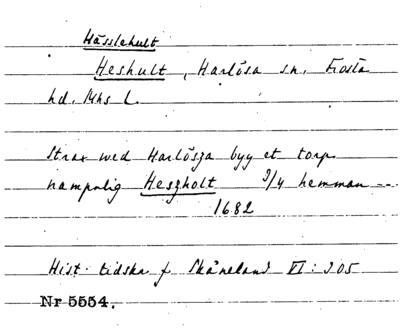 Hässlehult
Heshult, Harlösa sn, Frosta
hd. Mhs L.
Strax wed Harlösza byy et torp
nampnlig Heszholt 3/4 hemman --
1682
Hist. tidskr f Skåneland VI: 305
Nr 5554.